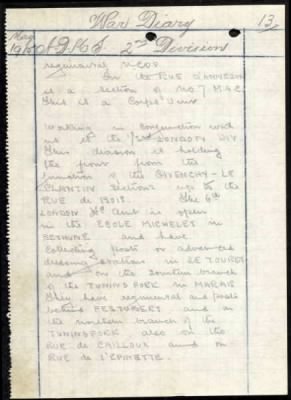 War Diary 13.
May 1915 2nd Division
regimental
In the RUE D'ANNEZIN
is a section of No 7 M.A.C.
This is a Corps Unit
Working in conjunction with
us is the LONDON DIV
This division is holding
the front from the
junction of the GIVENCHY - LE
PLANTIN Sections up to the
RUE de BOIS. The 6th
LONDON Fd Amb is open
in the ECOLE MICHELET in
BETHUNE and have
collecting posts or advanced
dressing stations in LE TOURET
and on the southern branch
of the TUNING FORK in MARAIS
They have regimental aid posts
behind FESTUBERT and on
the northern branch of the
TUNING FORK also on the
RUE de CAILLOUX and on
RUE de L'EPINETTE.